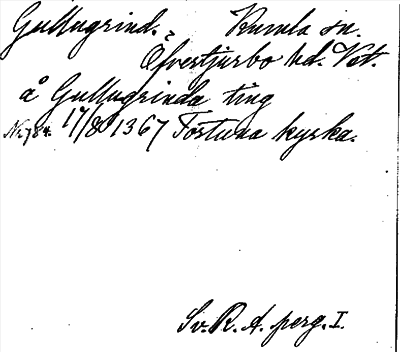 Gullugrind. ? Kumla sn.
Öfvertjurbo hd. Vstm.
å Gullugrinda ting
Nr. 784. 17/8 1367 Tortuna kyrka.
Sv. R. A. perg. I.